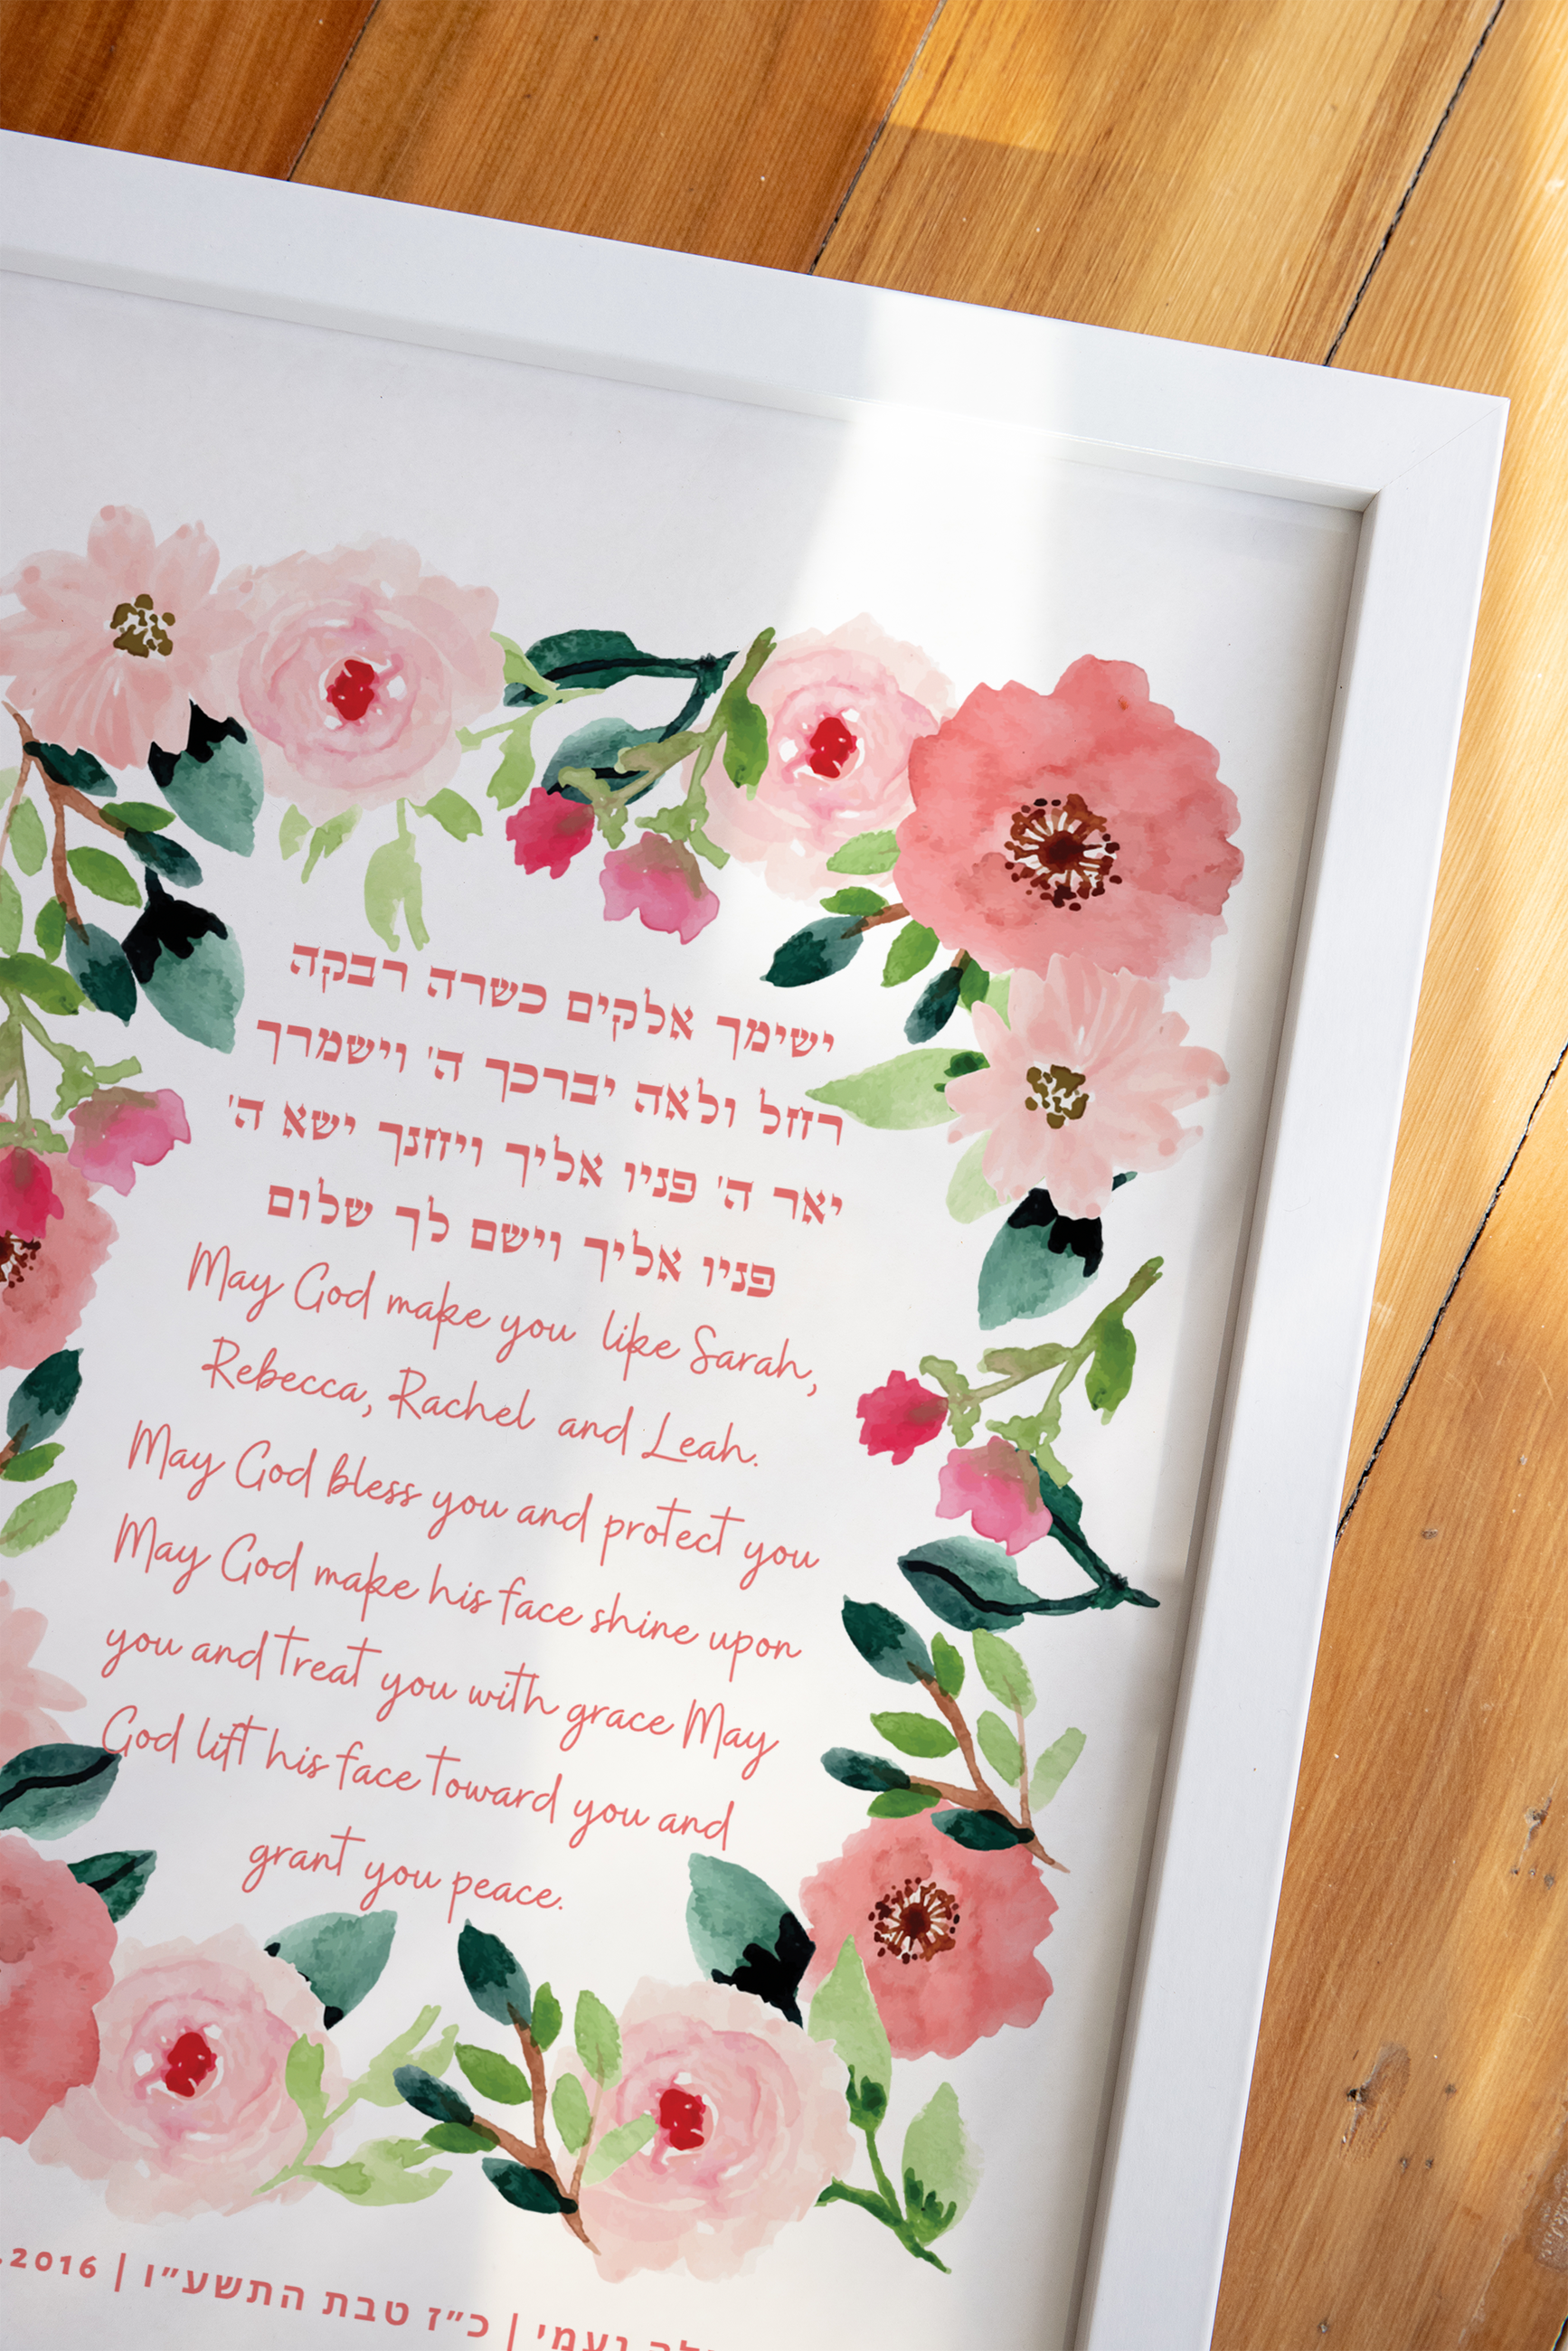 ישימך אלקים כשרה רבקה
רחל ולאה יברכך ה' וישמרך
יאר ה' פניו אליך ויחנך ישא ה'
פניו אליך וישם לך שלום
May God make you like Sarah,
Rebecca, Rachel and Leah.
May God bless you and protect you
May God make his face shine upon
you and treat you with grace May
God lift his face toward you and
grant you peace.
נעמי | כ"ז טבת התשע"ו | .2016